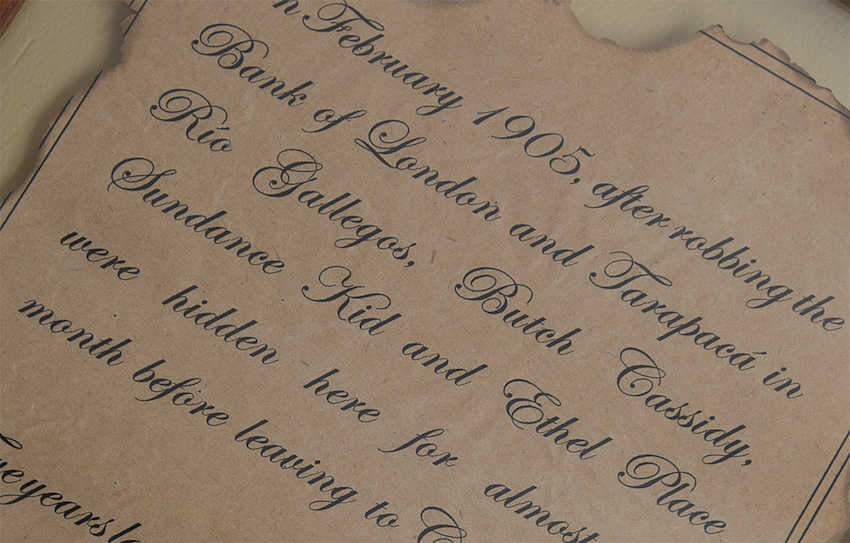 n February, 1905, after robbing the
Bank of London and Tarapacá in
Río Gallegos, Butch Cassidy,
Sundance Kid and Ethel Place
were hidden here for almost
month before leaving to C
years la